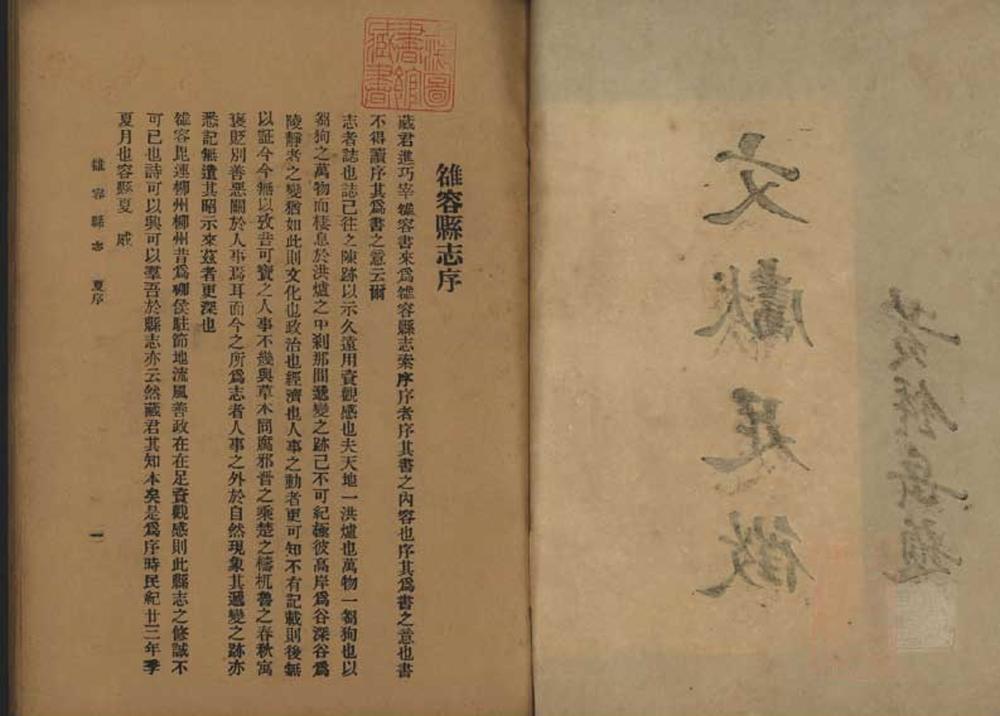 文獻足徵
雒容縣志序
藏君進巧宰雒容書來爲雒容縣志索序序者序其書之內容也序其爲書之意也書
不得讀序其爲書之意云爾
志者誌也誌已往之陳跡以示久遠用資觀感也夫天地一洪爐也萬物一芻狗也以
芻狗之萬物而棲息於洪爐之中剎那間遞變之跡已不可紀極彼高岸爲谷深谷爲
陵靜者之變猶如此則文化也政治也經濟也人事之動者更可知不有記載則後無
以証今今無以攷昔可寶之人事不幾與草木同腐邪晋之乘楚之檮杌魯之春秋寓
褒貶別善惡關於人事焉耳而今之所爲志者人事之外於自然現象其遞變之跡亦
悉記無遺其昭示來茲者更深也
雒容毘連柳州柳州昔爲柳侯駐節地流風善政在在足資觀感則此縣志之修誠不
可已也詩可以興可以羣吾於縣志亦云然藏君其知本矣是爲序時民紀廿三年季
夏月也容縣夏 威
雒容縣志 夏序 一
圖書館藏書